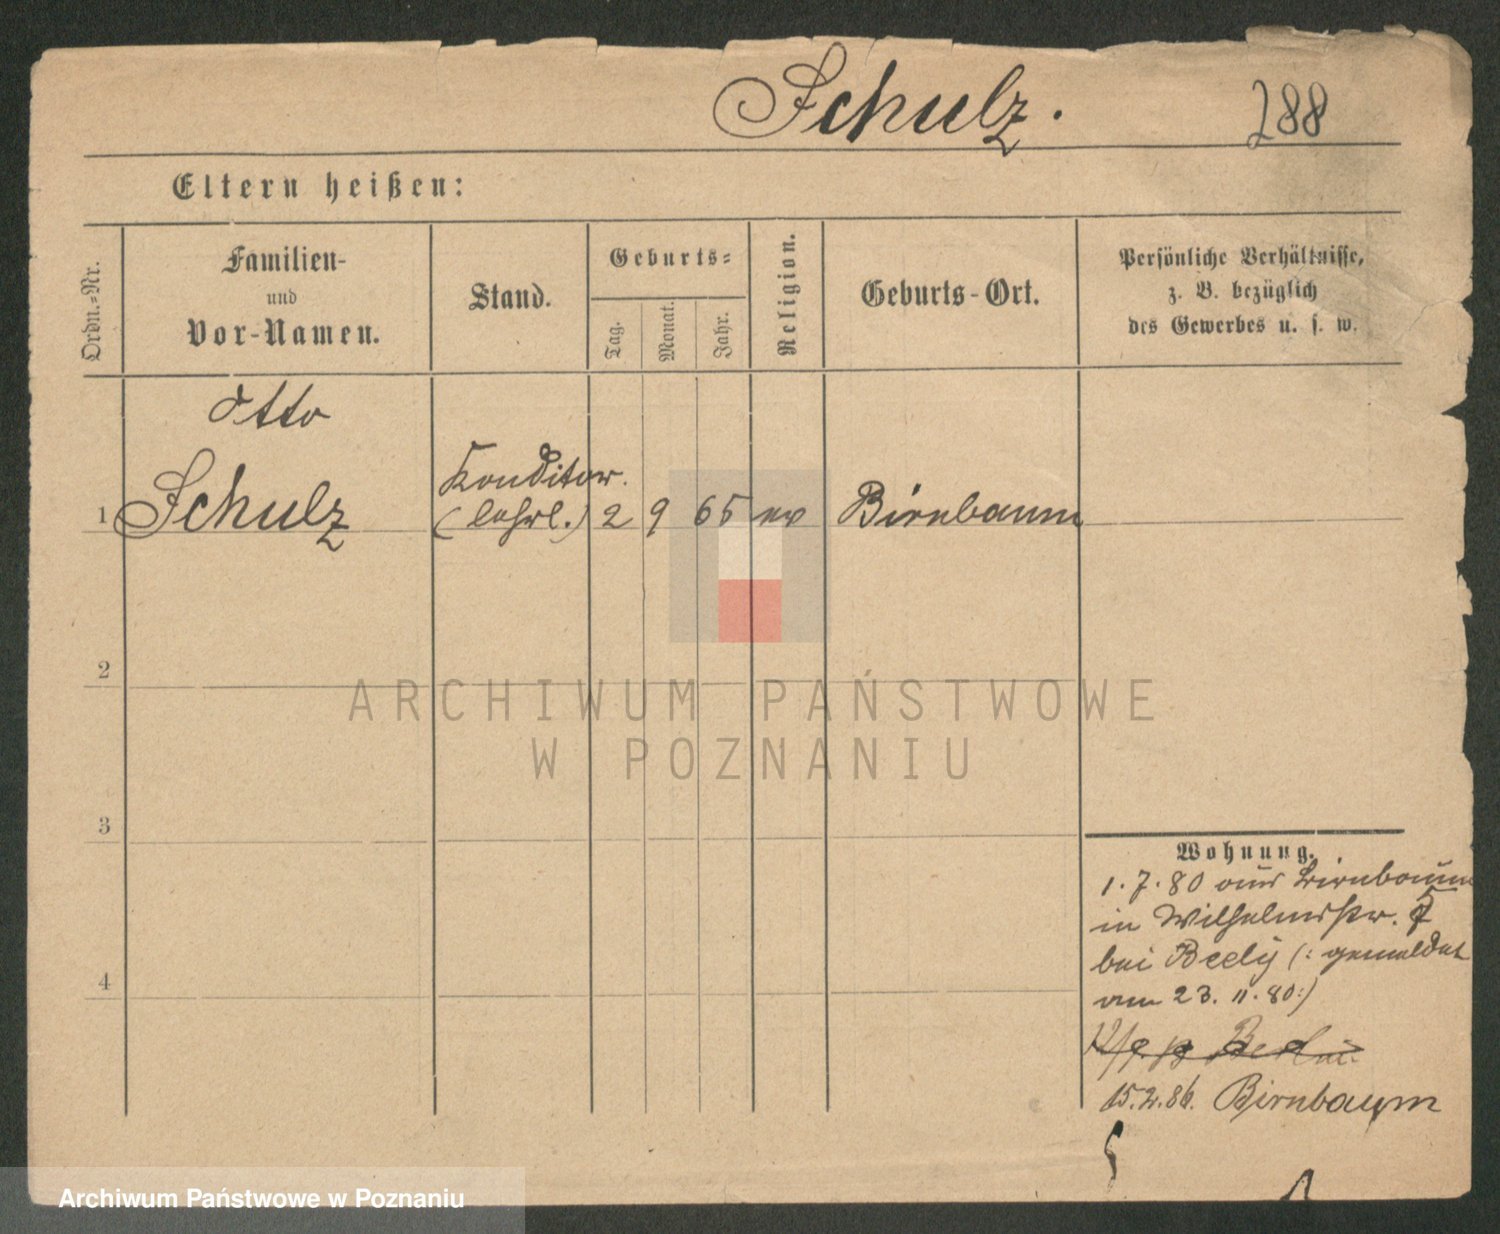 Schulz.
288
Eltern heißen:
Ordn.=Nr.
Familien-
und
Vor-Namen.
Stand.
Geburts=
Tag.
Monat.
Jahr.
Religion.
Geburts-Ort.
Persönliche Verhältnisse,
z. B. bezüglich
des Gewerbes u. s. w.
Otto
1 Schulz
Konditor.
(lehrl.)
2 9 65 ev Birnbaum
2
3
4
ARCHIWUM PAŃSTWOWE
W POZNANIU
Wohnung.
1.7.80 aus Birnbaum
in Wilhelmstr. 5
bei Beely (: gemeldet
am 23. 11. 80:)
Berlin
15.2.86. Birnbaum
Archiwum Państwowe w Poznaniu